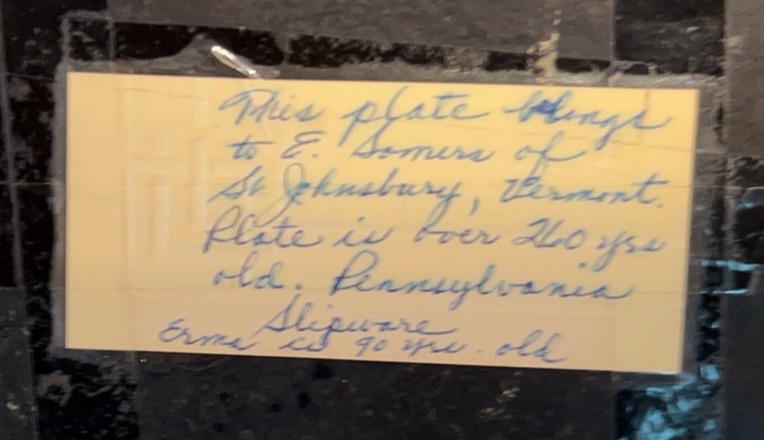 This plate belongs
to E. Somers of
St. Johnsbury, Vermont.
Plate is over 260 yrs
old. Pennsylvania
Slipware
Erma is 90 yrs. old